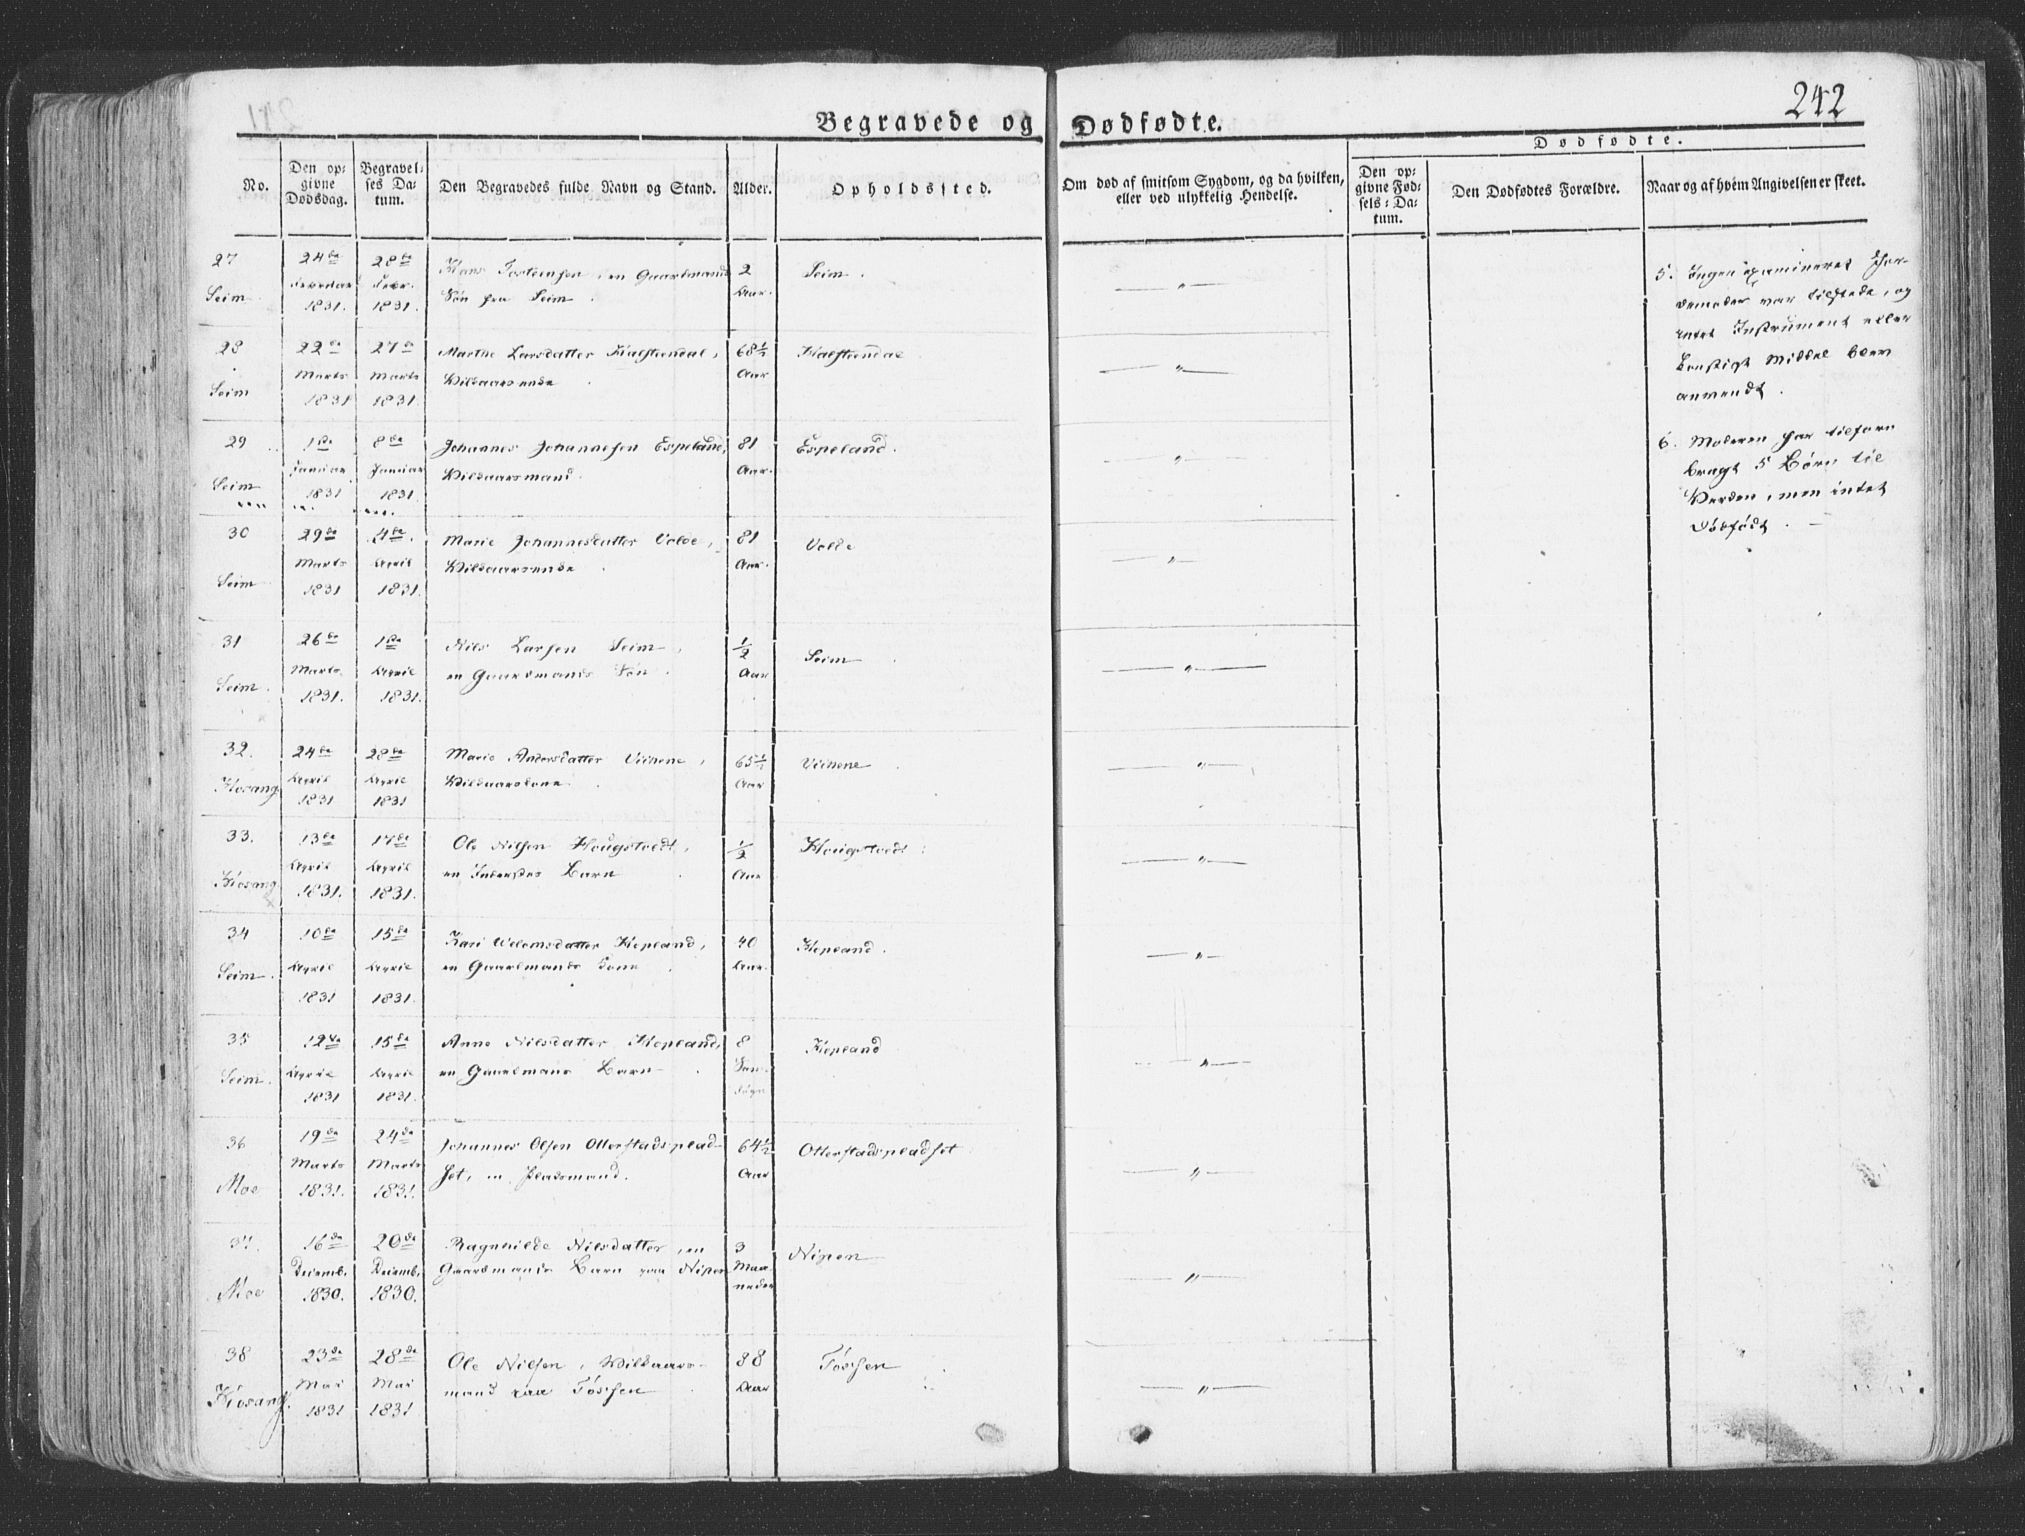 242
Begravede og Dødfødte.
No.
Den opgivne Dødsdag.
Begravelses Datum.
Den Begravedes fulde Navn og Stand.
Alder.
Opholdssted.
Om død af smitsom Sygdom, og da hvilken,
eller ved ulykkelig Hendelse.
Dødfødte.
Den opgivne Fødsels-Datum.
Den Dødfødtes Forældre.
Naar og af hvem Angivelsen er skeet.
27 24de 28de Hans Torsteensen, en Gaardmands 2 Seim.
Seim Februar Febr. Søn fra Seim. Aar.
1831. 1831.
28 22de 27de Marthe Larsdatter Kalsteendal, 68½ Kalsteendal
Seim Marts Marts Vilkaarsende Aar
1831 1831.
29 1ste 8de Johannes Johannesen Espeland, 81 Espeland.
Seim Januar Januar Vilkaarsmand. Aar.
1831 1831.
30 29de 4de Marie Johannesdatter Volde, 81 Volde
Seim Marts April Vilkaarsende Aar.
1831 1831.
31 26de 1ste Nils Larsen Seim, ½ Seim
Seim. Marts April en Gaardmands Søn. Aar
1831. 1831.
32. 24de 28de Marie Andersdatter Viihene, 65½ Viihene
Hosang April April Vilkaarskone Aar
1831 1831
33. 13de 17de Ole Nilsen Hougstvedt, ½ Hougstvedt
Hosang April April en Inderstes Barn Aar
1831. 1831.
34 10de 15de Kari Villomsdatter Hopland, 40 Hopland.
Seim. April April en Gaardmands Kone Aar.
1831 1831.
35 12te 15de Anne Nilsdatter Hopland, 8 Hopland
Seim. April April en Gaardmans Barn
1831 1831.
36 19de 24de Johannes Olsen Otterstadsplad- 64½ Otterstadspladset
Moe Marts Marts set, en Pladsmand. Aar
1831. 1831.
37. 16de 20de Ragnhilde Nilsdatter, en 3 Nipen
Moe Decemb. Decemb. Gaardmands Barn paa Nipen Maaneder
1830. 1830.
38 23de 28de Ole Nilsen, Vilkaars- 88 Tøssen
Hosang. Mai Mai mand paa Tøssen Aar
1831 1831
5. Ingen examineret Jor-
demoder var tilstede, og
intet Instrument eller
konstigt Middel blev
anvendt.
6. Moderen har tilforn
bragt 5 Børn til
Verden, men intet
dødfødt. —